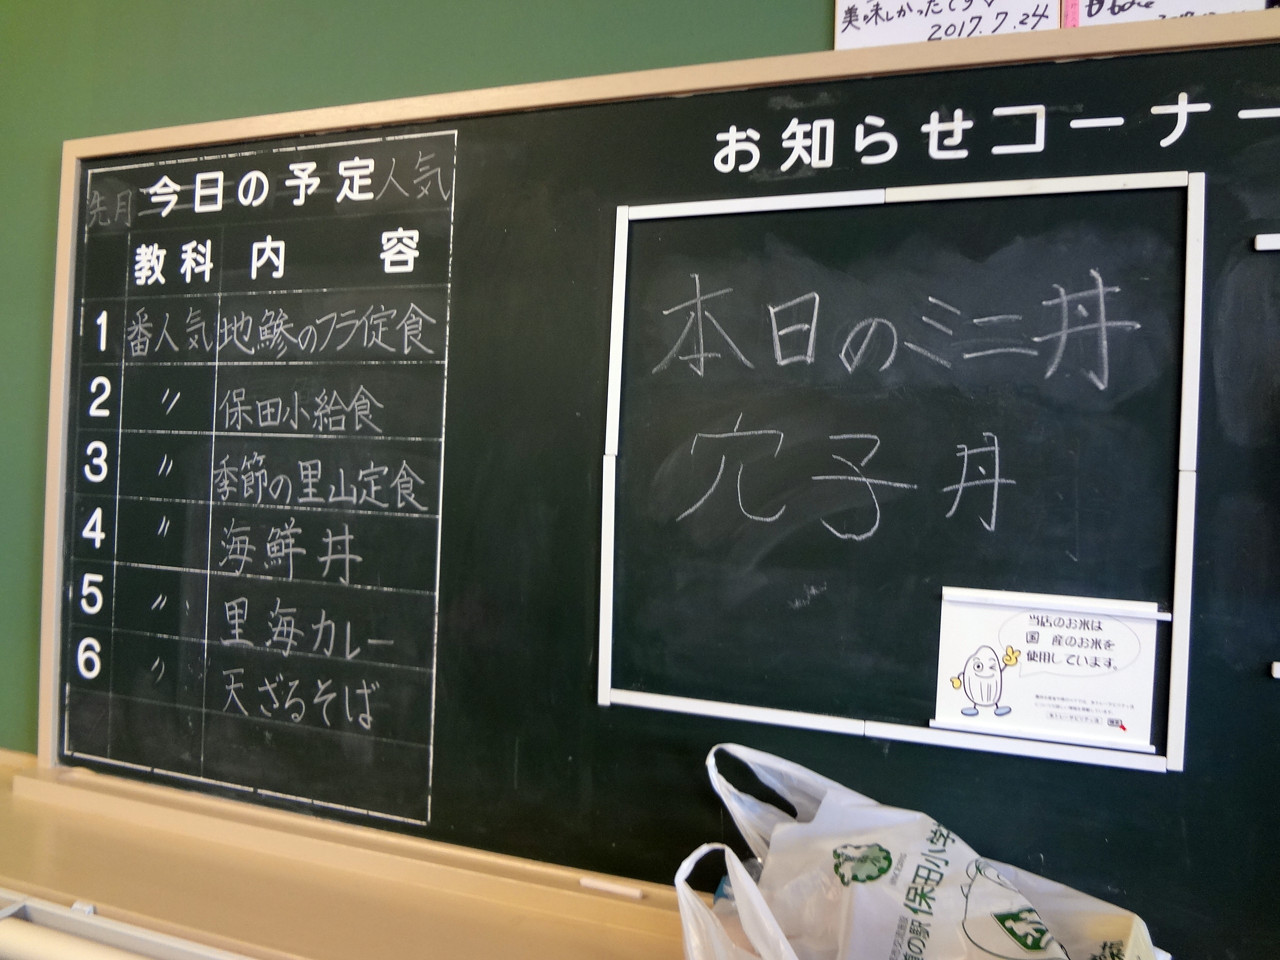 美味しかったです
2017.7.24
お知らせコーナー
先月 今日の予定 人気
教科 内容
1 番人気 地鯵のフライ定食
2 〃 保田小給食
3 〃 季節の里山定食
4 〃 海鮮丼
5 〃 里海カレー
6 〃 天ざるそば
本日のミニ丼
穴子丼
当店のお米は
国産のお米を
使用しています。
道の駅 保田小学